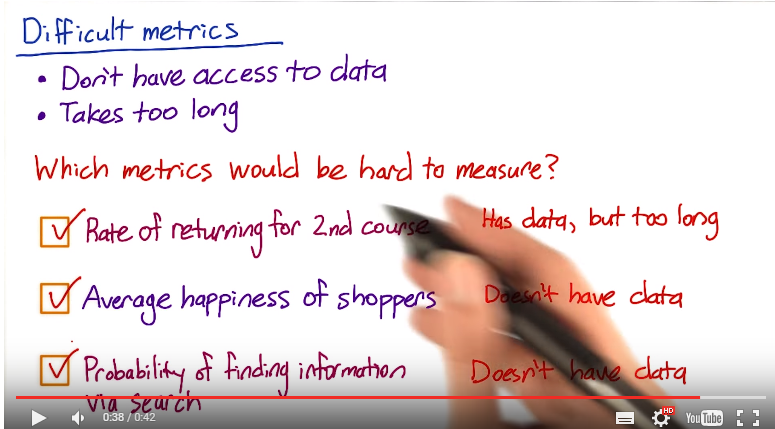 Difficult metrics
• Don't have access to data
• Takes too long
Which metrics would be hard to measure?
Rate of returning for 2nd course Has data, but too long
Average happiness of shoppers Doesn't have data
Probability of finding information Doesn't have data
via search
0:38 / 0:42 HD YouTube